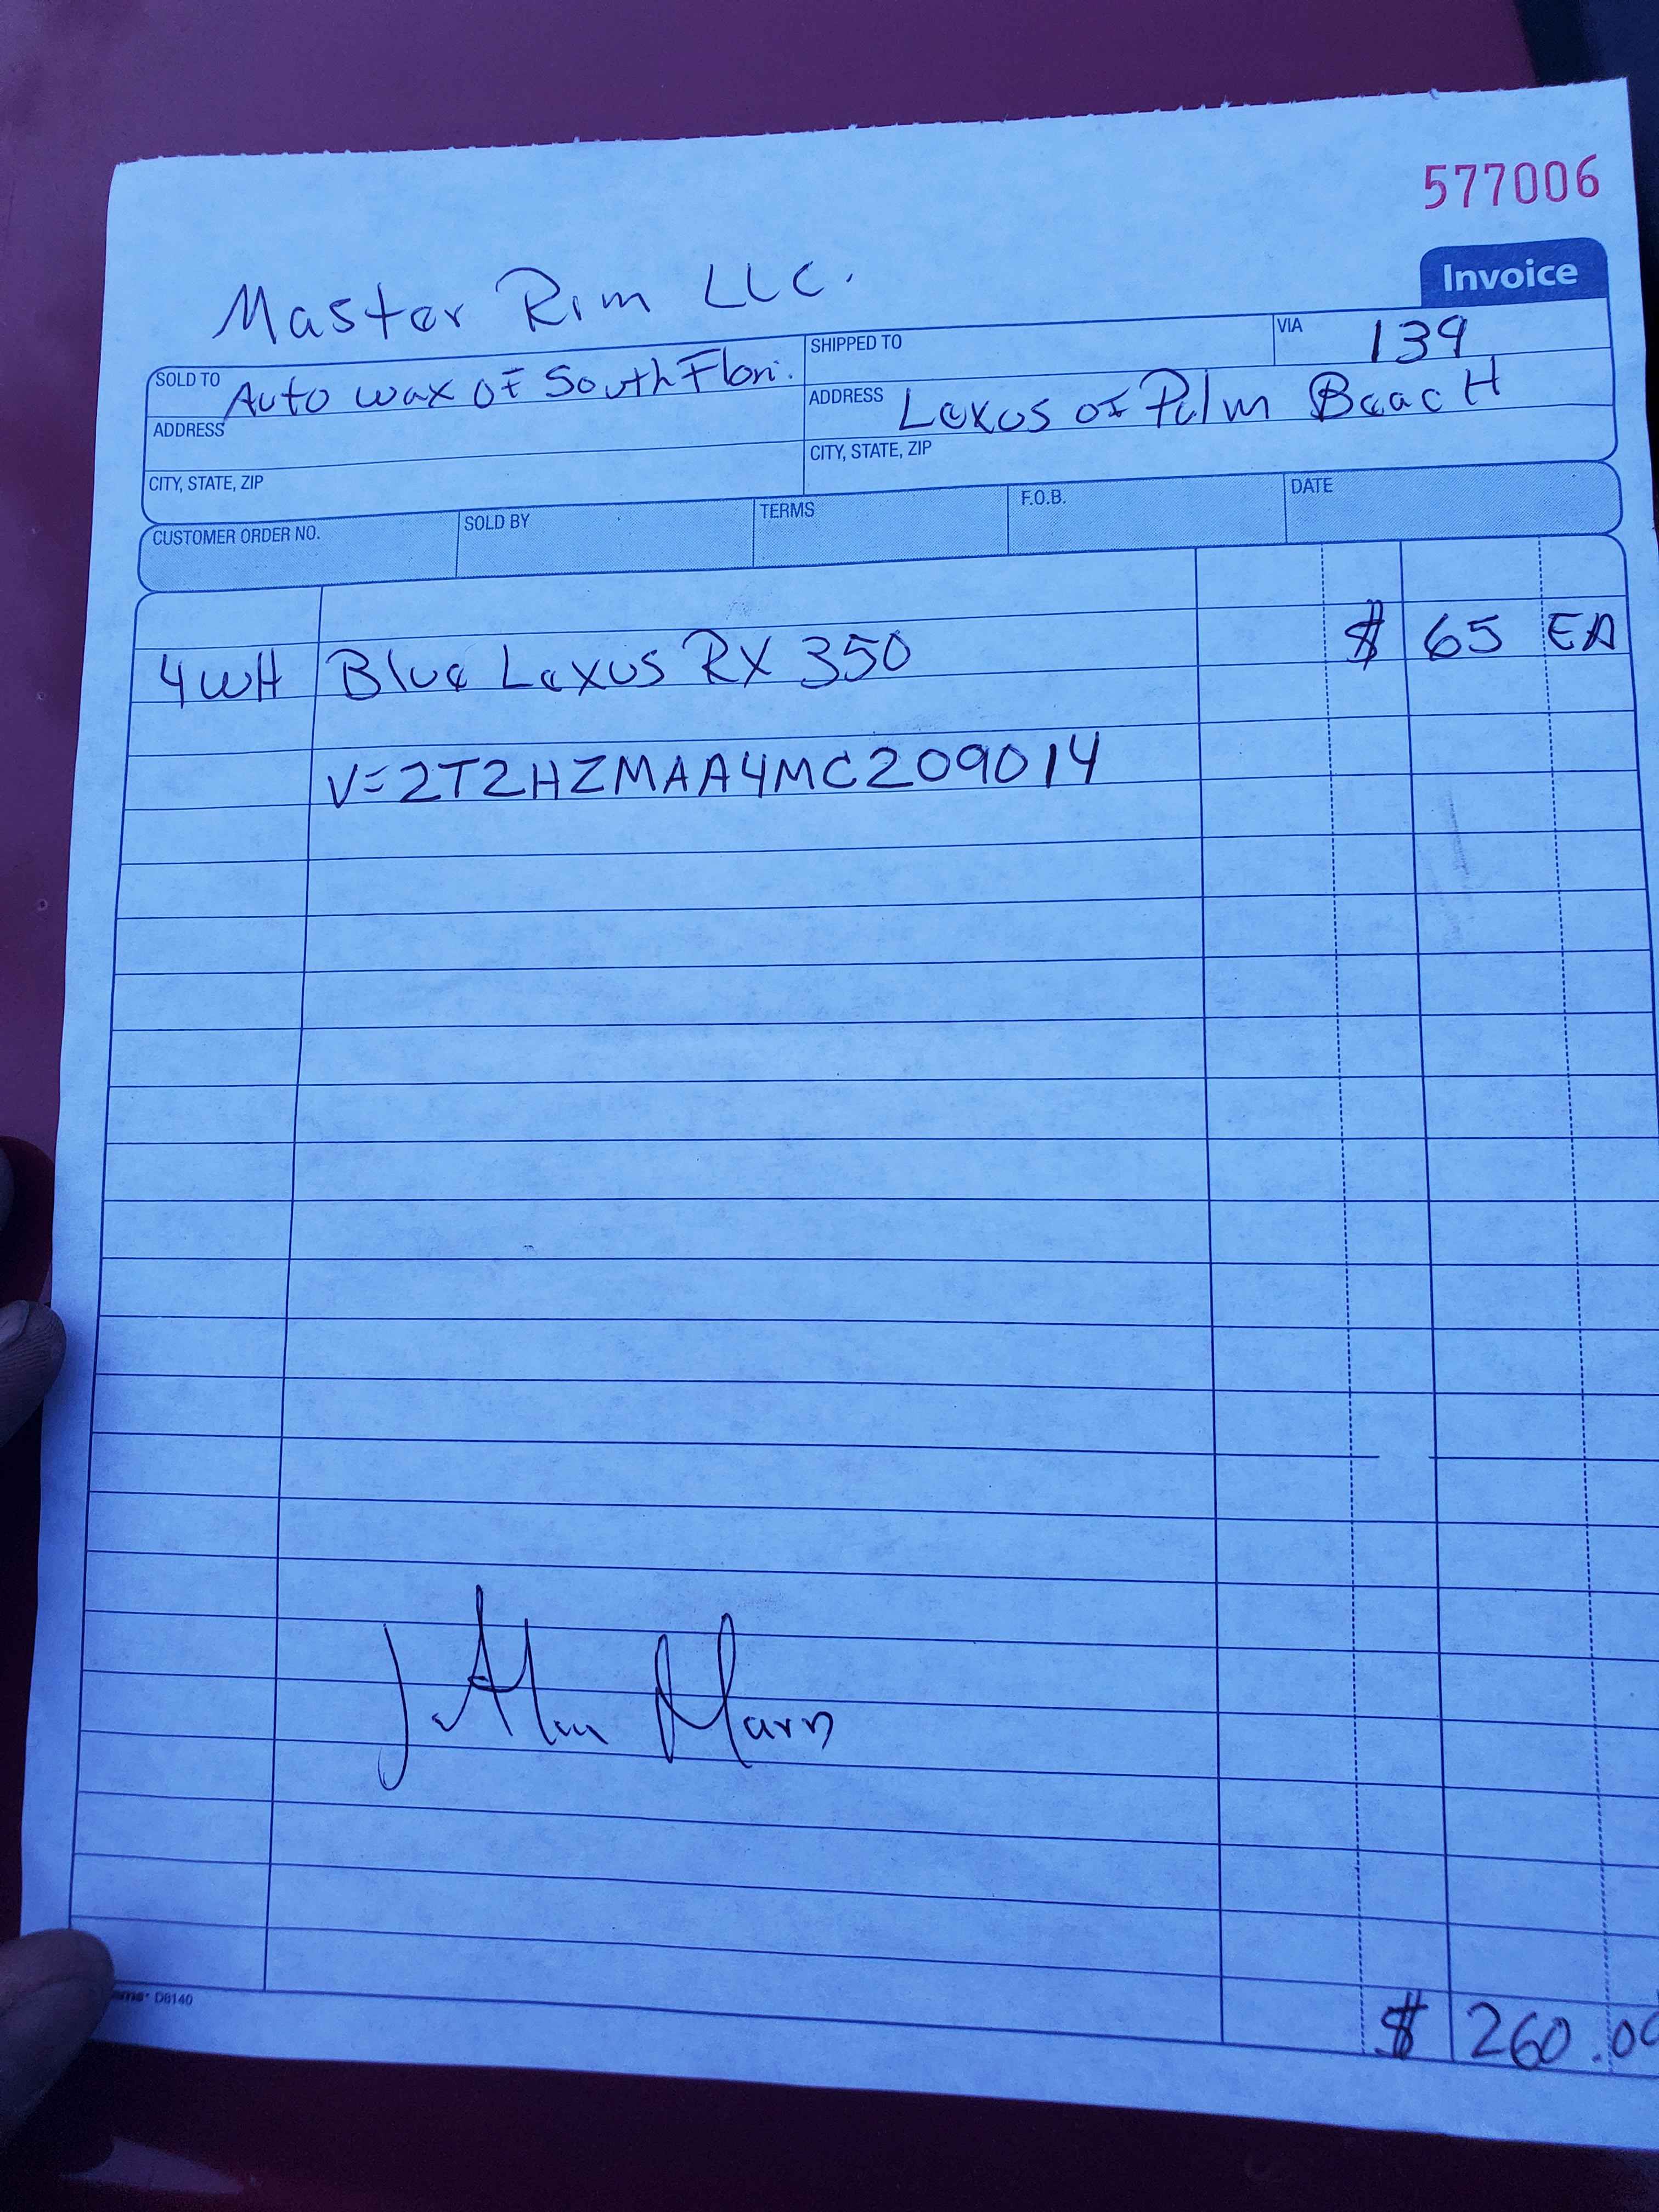 577006
Invoice
Master Rim LLC.
SOLD TO Auto wax of South Flori.
SHIPPED TO
VIA 139
ADDRESS
ADDRESS Lexus of Palm Beach
CITY, STATE, ZIP
CITY, STATE, ZIP
CUSTOMER ORDER NO. SOLD BY TERMS F.O.B. DATE
4WH Blue Lexus RX 350 $ 65 EA
V=2T2HZMAA4MC209014
D8140
$ 260.00